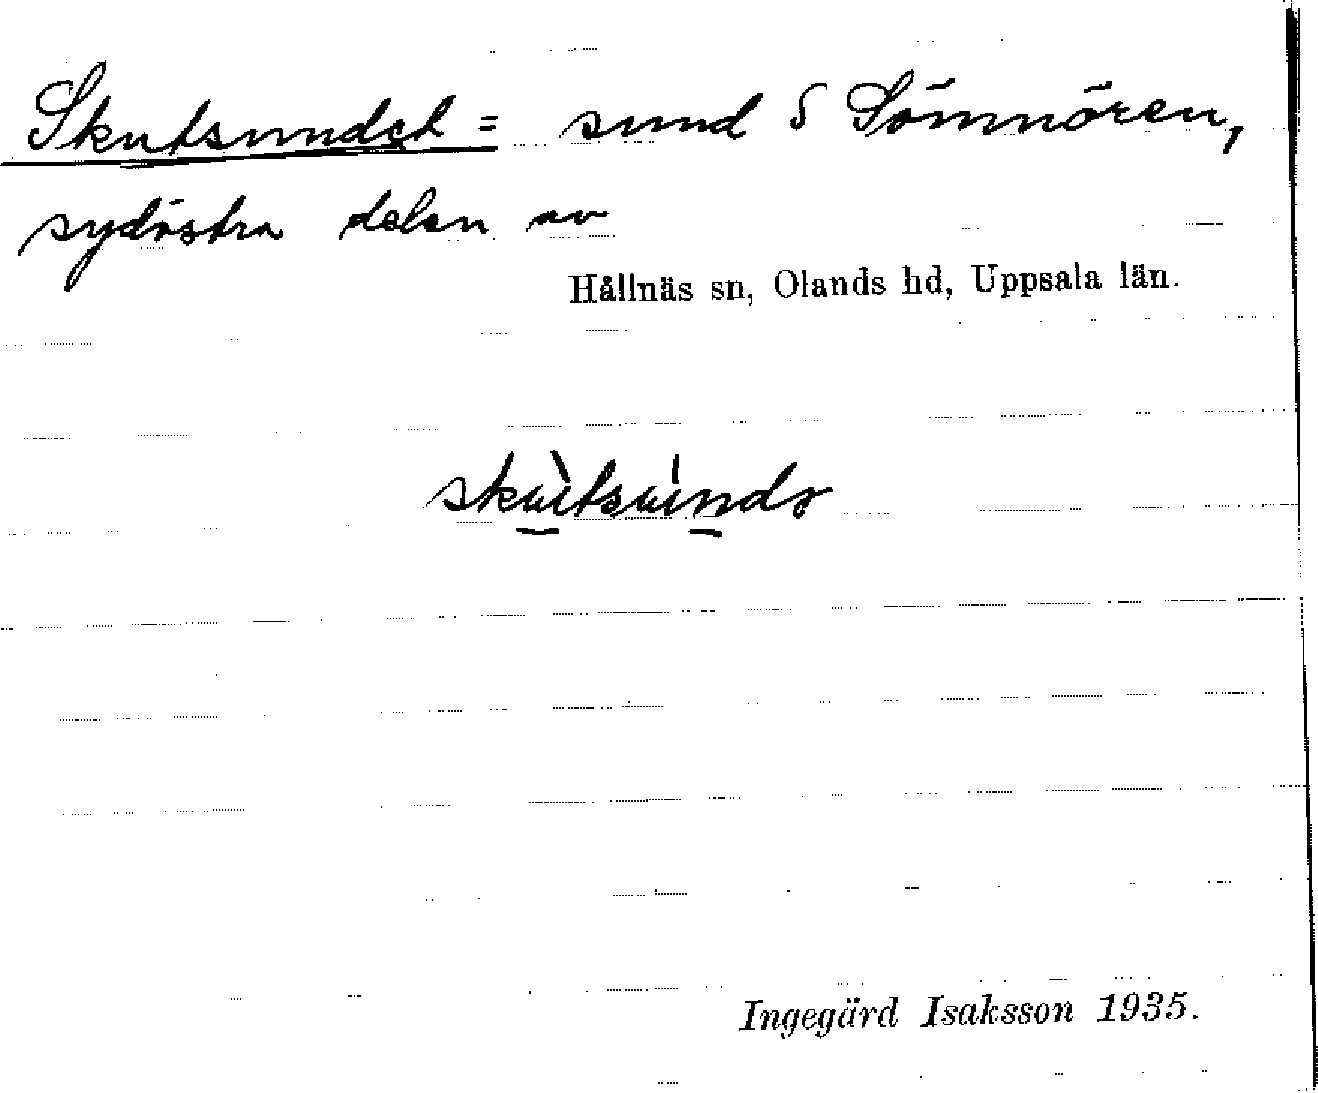 Skutsundet = sund S Sömnören,
sydöstra delen av
Hållnäs sn, Olands hd, Uppsala län.
skùtsúndə
Ingegärd Isaksson 1935.